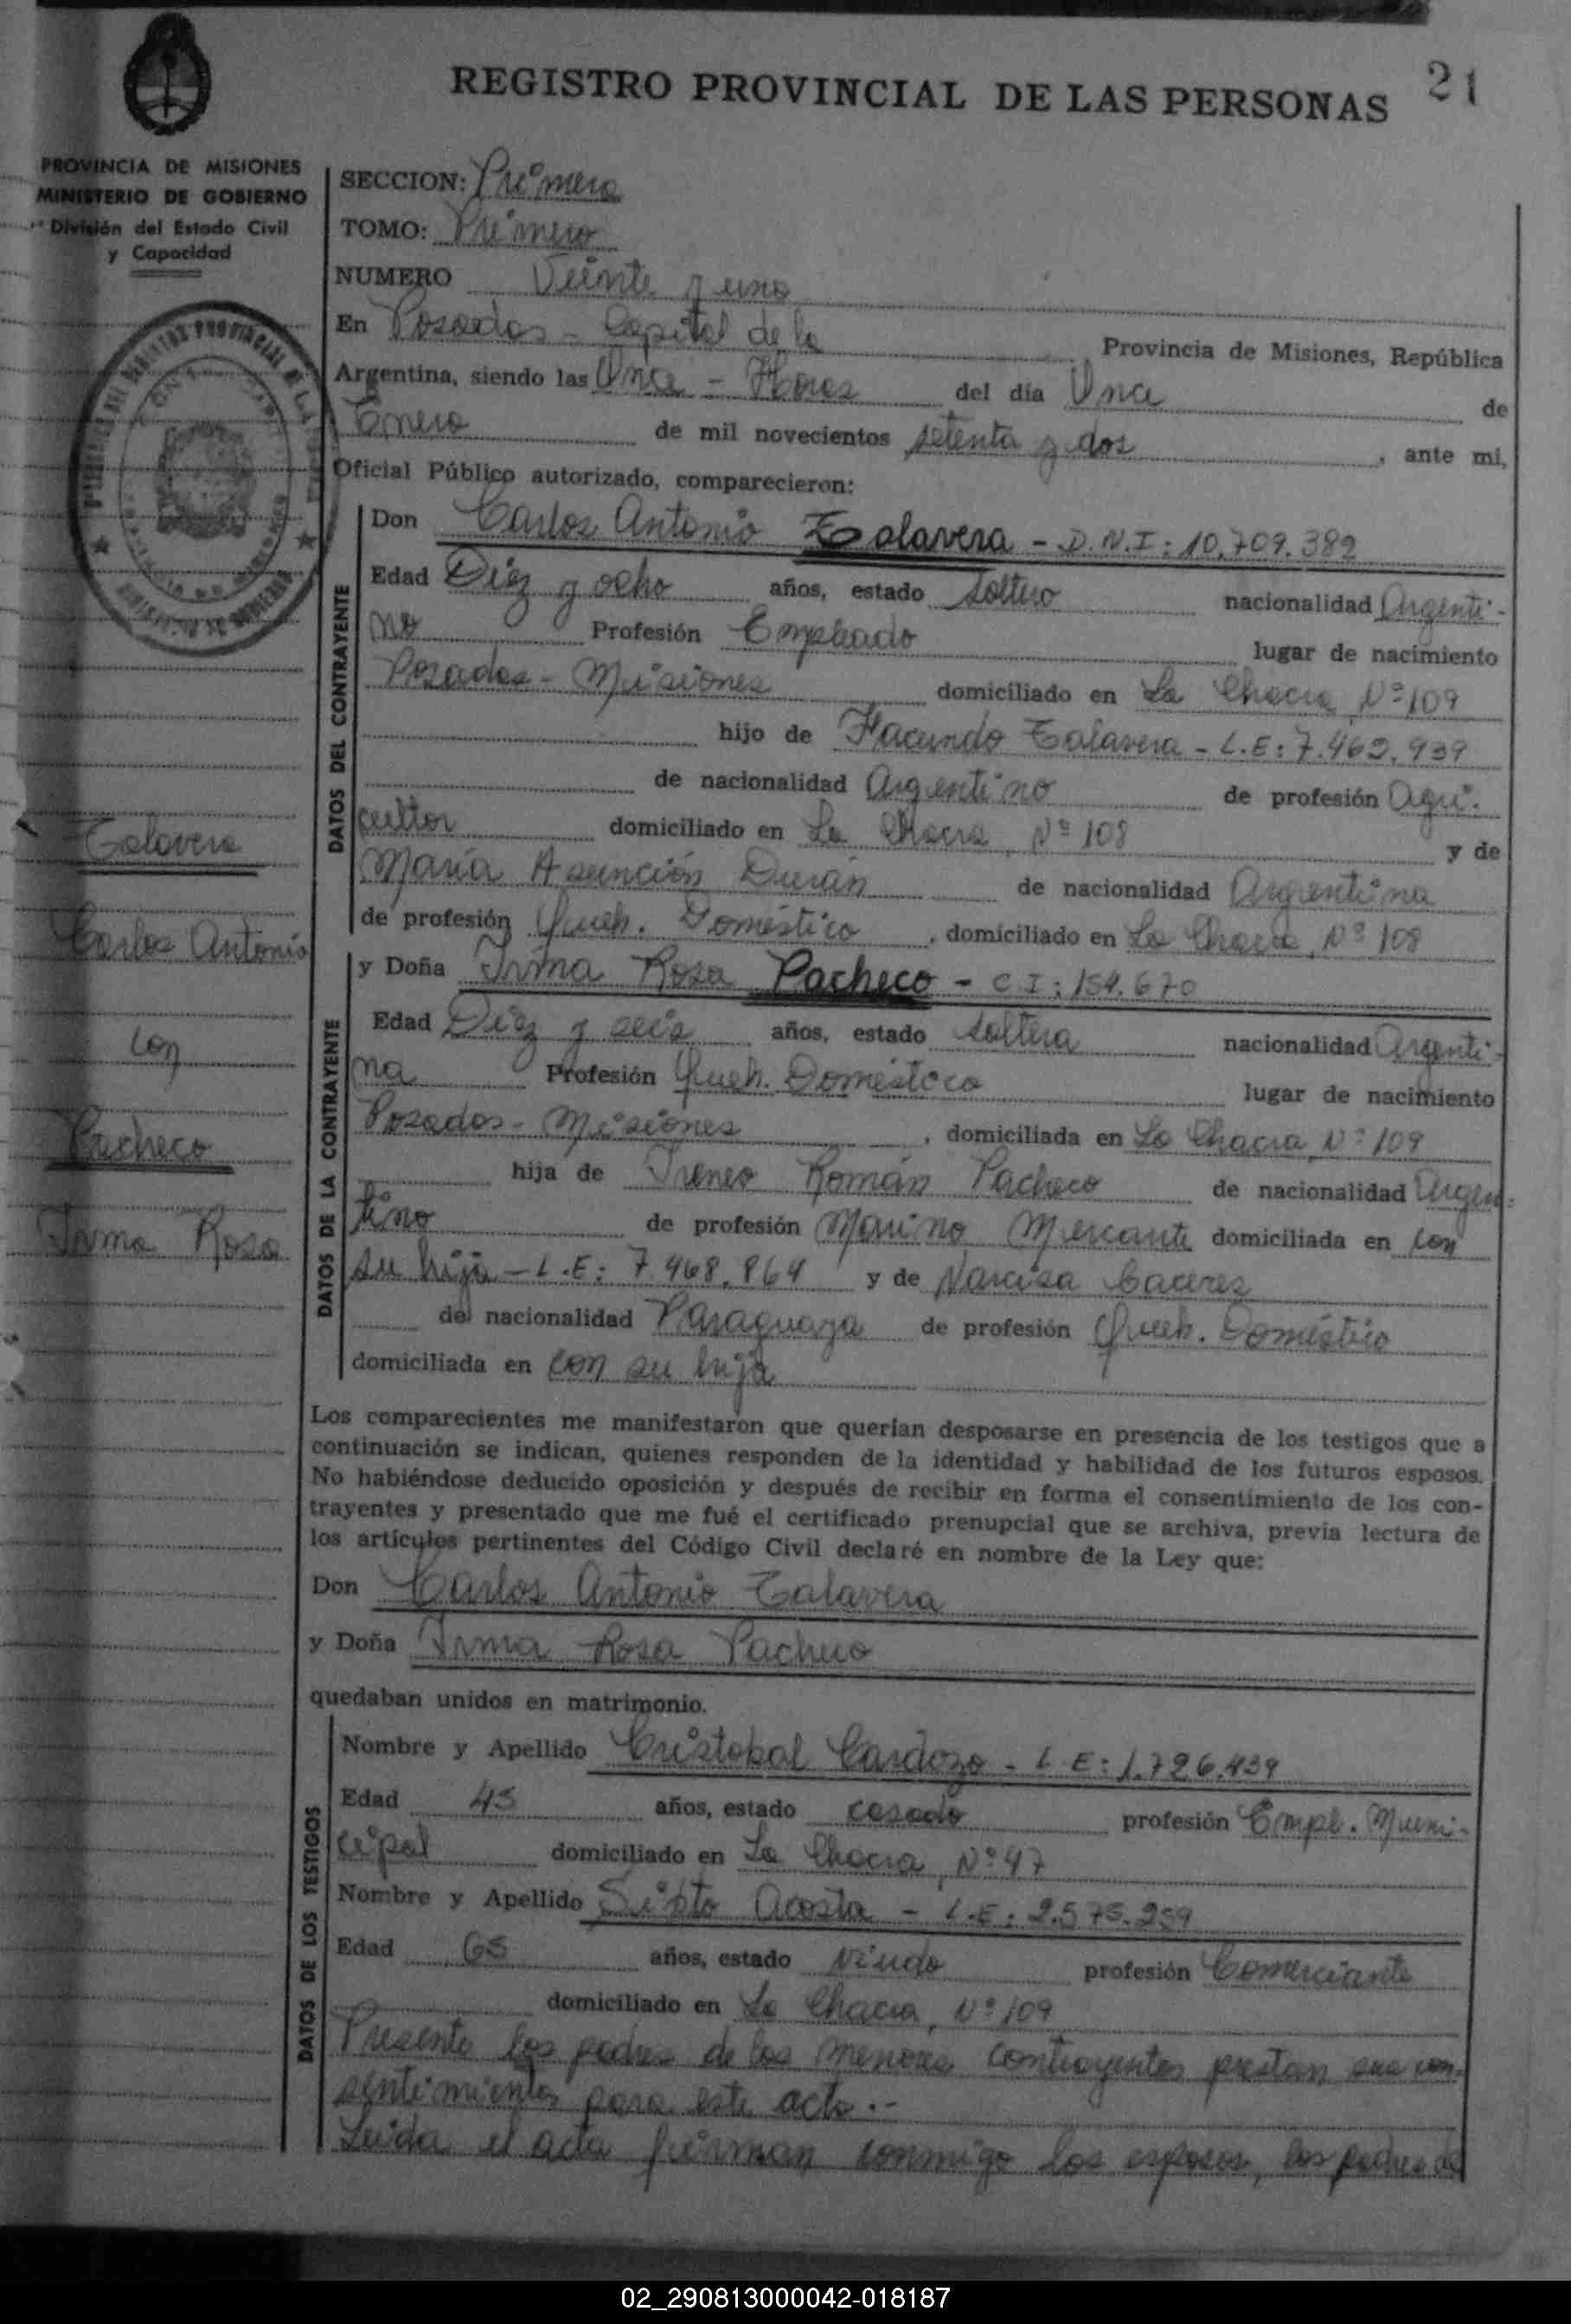 REGISTRO PROVINCIAL DE LAS PERSONAS 21
PROVINCIA DE MISIONES
MINISTERIO DE GOBIERNO
División del Estado Civil
y Capacidad
SECCION: Primera
TOMO: Primero
NUMERO Veinte y uno
En Posadas - Capital de la Provincia de Misiones, República
Argentina, siendo las Once - Horas del día Once de
Enero de mil novecientos setenta y dos, ante mi,
Oficial Público autorizado, comparecieron:
DATOS DEL CONTRAYENTE
Don Carlos Antonio Talavera - D.N.I: 10.709.382
Edad Diez y ocho años, estado soltero nacionalidad Argenti-
no Profesión Empleado lugar de nacimiento
Posadas - Misiones domiciliado en La Chacra Nº 109
hijo de Facundo Talavera - L.E: 7.462.939
de nacionalidad Argentino de profesión Agri-
cultor domiciliado en La Chacra, Nº 108 y de
María Asunción Durán de nacionalidad Argentina
de profesión Queh. Doméstico, domiciliado en La Chacra, Nº 108
DATOS DE LA CONTRAYENTE
y Doña Irma Rosa Pacheco - C.I: 154.670
Edad Diez y seis años, estado soltera nacionalidad Argenti-
na Profesión Queh. Doméstico lugar de nacimiento
Posadas - Misiones, domiciliada en La Chacra, Nº 109
hija de Ireneo Román Pacheco de nacionalidad Argen-
tino de profesión Marino Mercante domiciliada en con
su hija - L.E: 7.468.864 y de Narcisa Caceres
de nacionalidad Paraguaya de profesión Queh. Doméstico
domiciliada en con su hija
Talavera
Carlos Antonio
con
Pacheco
Irma Rosa
Los comparecientes me manifestaron que querían desposarse en presencia de los testigos que a
continuación se indican, quienes responden de la identidad y habilidad de los futuros esposos.
No habiéndose deducido oposición y después de recibir en forma el consentimiento de los con-
trayentes y presentado que me fué el certificado prenupcial que se archiva, previa lectura de
los artículos pertinentes del Código Civil declaré en nombre de la Ley que:
Don Carlos Antonio Talavera
y Doña Irma Rosa Pacheco
quedaban unidos en matrimonio.
DATOS DE LOS TESTIGOS
Nombre y Apellido Cristobal Cardozo - L.E: 1.726.439
Edad 45 años, estado casado profesión Empl. Muni-
cipal domiciliado en La Chacra, Nº 47
Nombre y Apellido Sixto Acosta - L.E: 2.575.259
Edad 65 años, estado viudo profesión Comerciante
domiciliado en La Chacra, Nº 109
Presente los padres de los menores contrayentes prestan sus con-
sentimientos para este acto.-
Leída el acta firman conmigo los esposos, los padres de
02_290813000042-018187